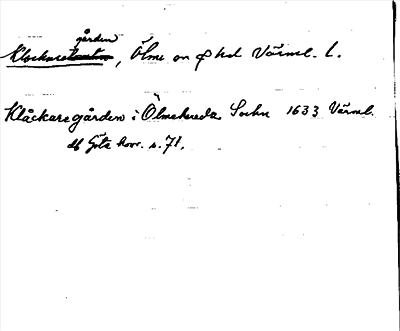 Klockaregården, Ölme sn o hd Värml. l.
Klåckaregården i Ölmehereds Sockn 1633 Värml.
df Göta hovr. s. 71.